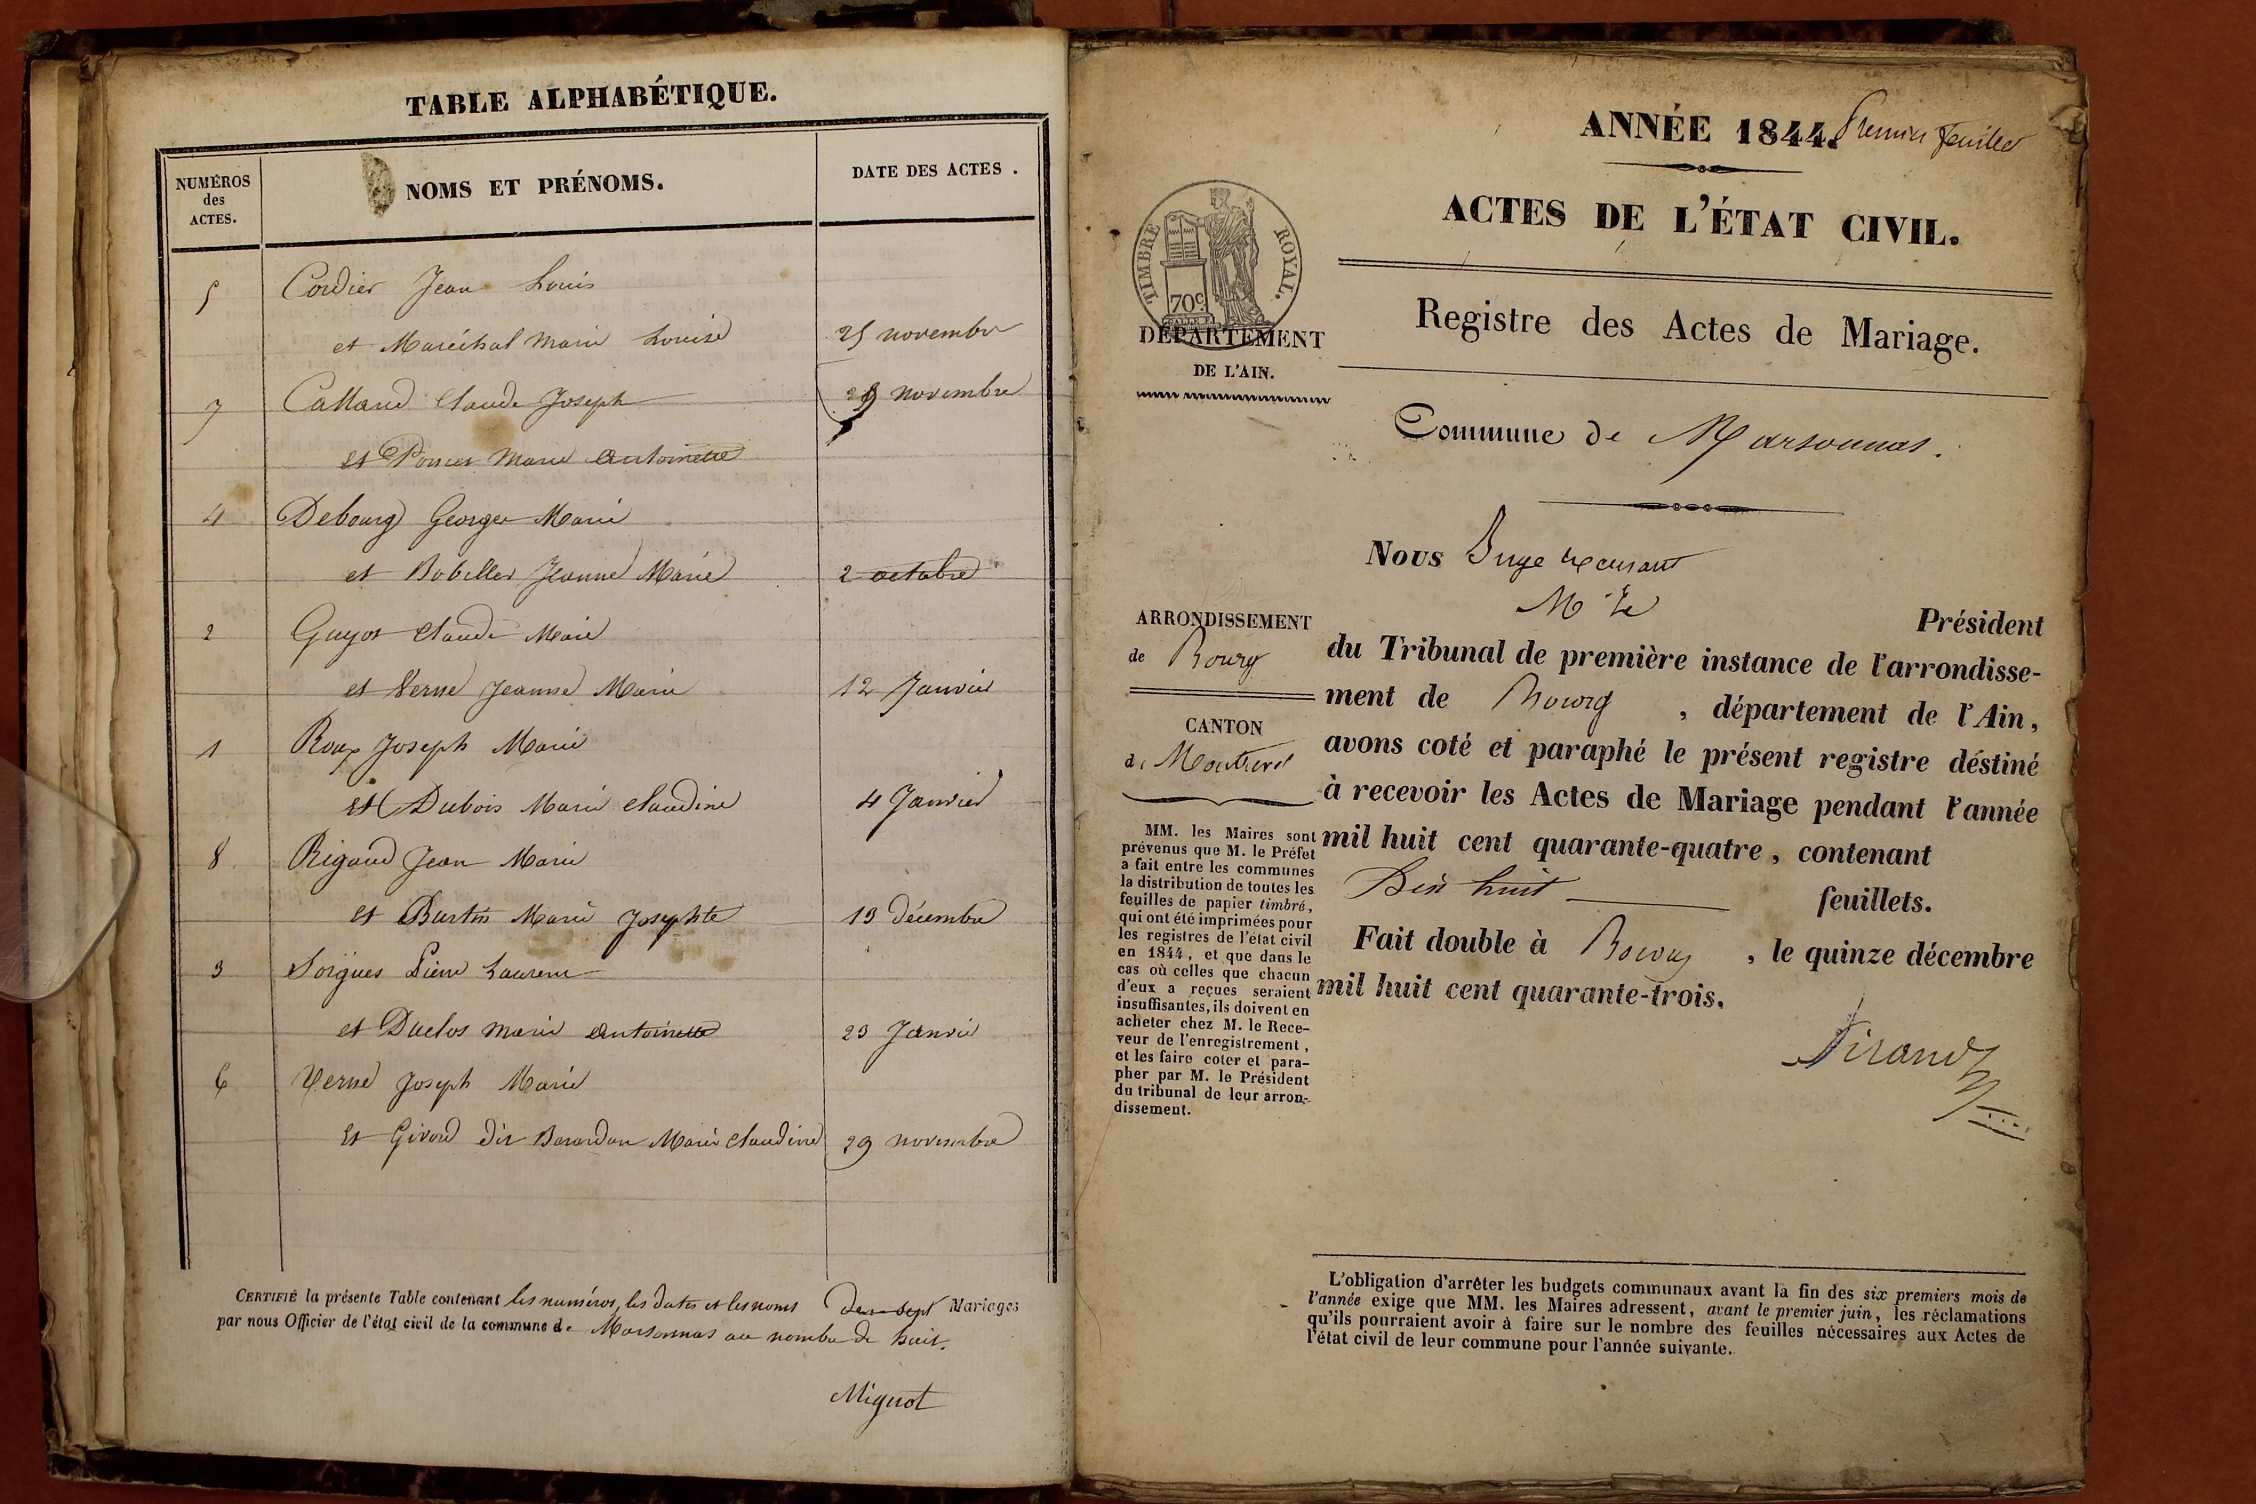 TABLE ALPHABÉTIQUE.
NUMÉROS
des
ACTES.
NOMS ET PRÉNOMS.
DATE DES ACTES.
5 Cordier Jean Louis
et Maréchal Marie Louise 25 novembre
7 Calland Claude Joseph 29 novembre
et Poncet Marie Antoinette
4 Debourg George Marie
et Bobiller Jeanne Marie 2 octobre
2 Guyot Claude Marie
et Verne Jeanne Marie 12 Janvier
1 Roux Joseph Marie
et Dubois Marie Claudine 4 Janvier
8 Rigaud Jean Marie
et Burtin Marie Josephte 19 décembre
3 Soigues Pierre Laurent
et Duclos Marie Antoinette 23 Janvier
6 Verne Joseph Marie
et Givord dit Berardan Marie Claudine 29 novembre
CERTIFIÉ la présente Table contenant les numéros, les dates et les noms Mariages
par nous Officier de l'état civil de la commune de Marsonnas au nombre de huit.
Mignot
ANNÉE 1844. Premier feuillet
ACTES DE L'ÉTAT CIVIL.
TIMBRE ROYAL.
70 c.
DÉPARTEMENT
DE L'AIN.
Registre des Actes de Mariage.
Commune de Marsonnas.
Nous Juge
Président
ARRONDISSEMENT
de Bourg
CANTON
de Montrevel
du Tribunal de première instance de l'arrondisse-
ment de Bourg, département de l'Ain,
avons coté et paraphé le présent registre déstiné
à recevoir les Actes de Mariage pendant l'année
mil huit cent quarante-quatre, contenant
Dix huit feuillets.
Fait double à Bourg, le quinze décembre
mil huit cent quarante-trois.
MM. les Maires sont
prévenus que M. le Préfet
a fait entre les communes
la distribution de toutes les
feuilles de papier timbré,
qui ont été imprimées pour
les registres de l'état civil
en 1844, et que dans le
cas où celles que chacun
d'eux a reçues seraient
insuffisantes, ils doivent en
acheter chez M. le Rece-
veur de l'enregistrement,
et les faire coter et para-
pher par M. le Président
du tribunal de leur arron-
dissement.
L'obligation d'arrêter les budgets communaux avant la fin des six premiers mois de
l'année exige que MM. les Maires adressent, avant le premier juin, les réclamations
qu'ils pourraient avoir à faire sur le nombre des feuilles nécessaires aux Actes de
l'état civil de leur commune pour l'année suivante.